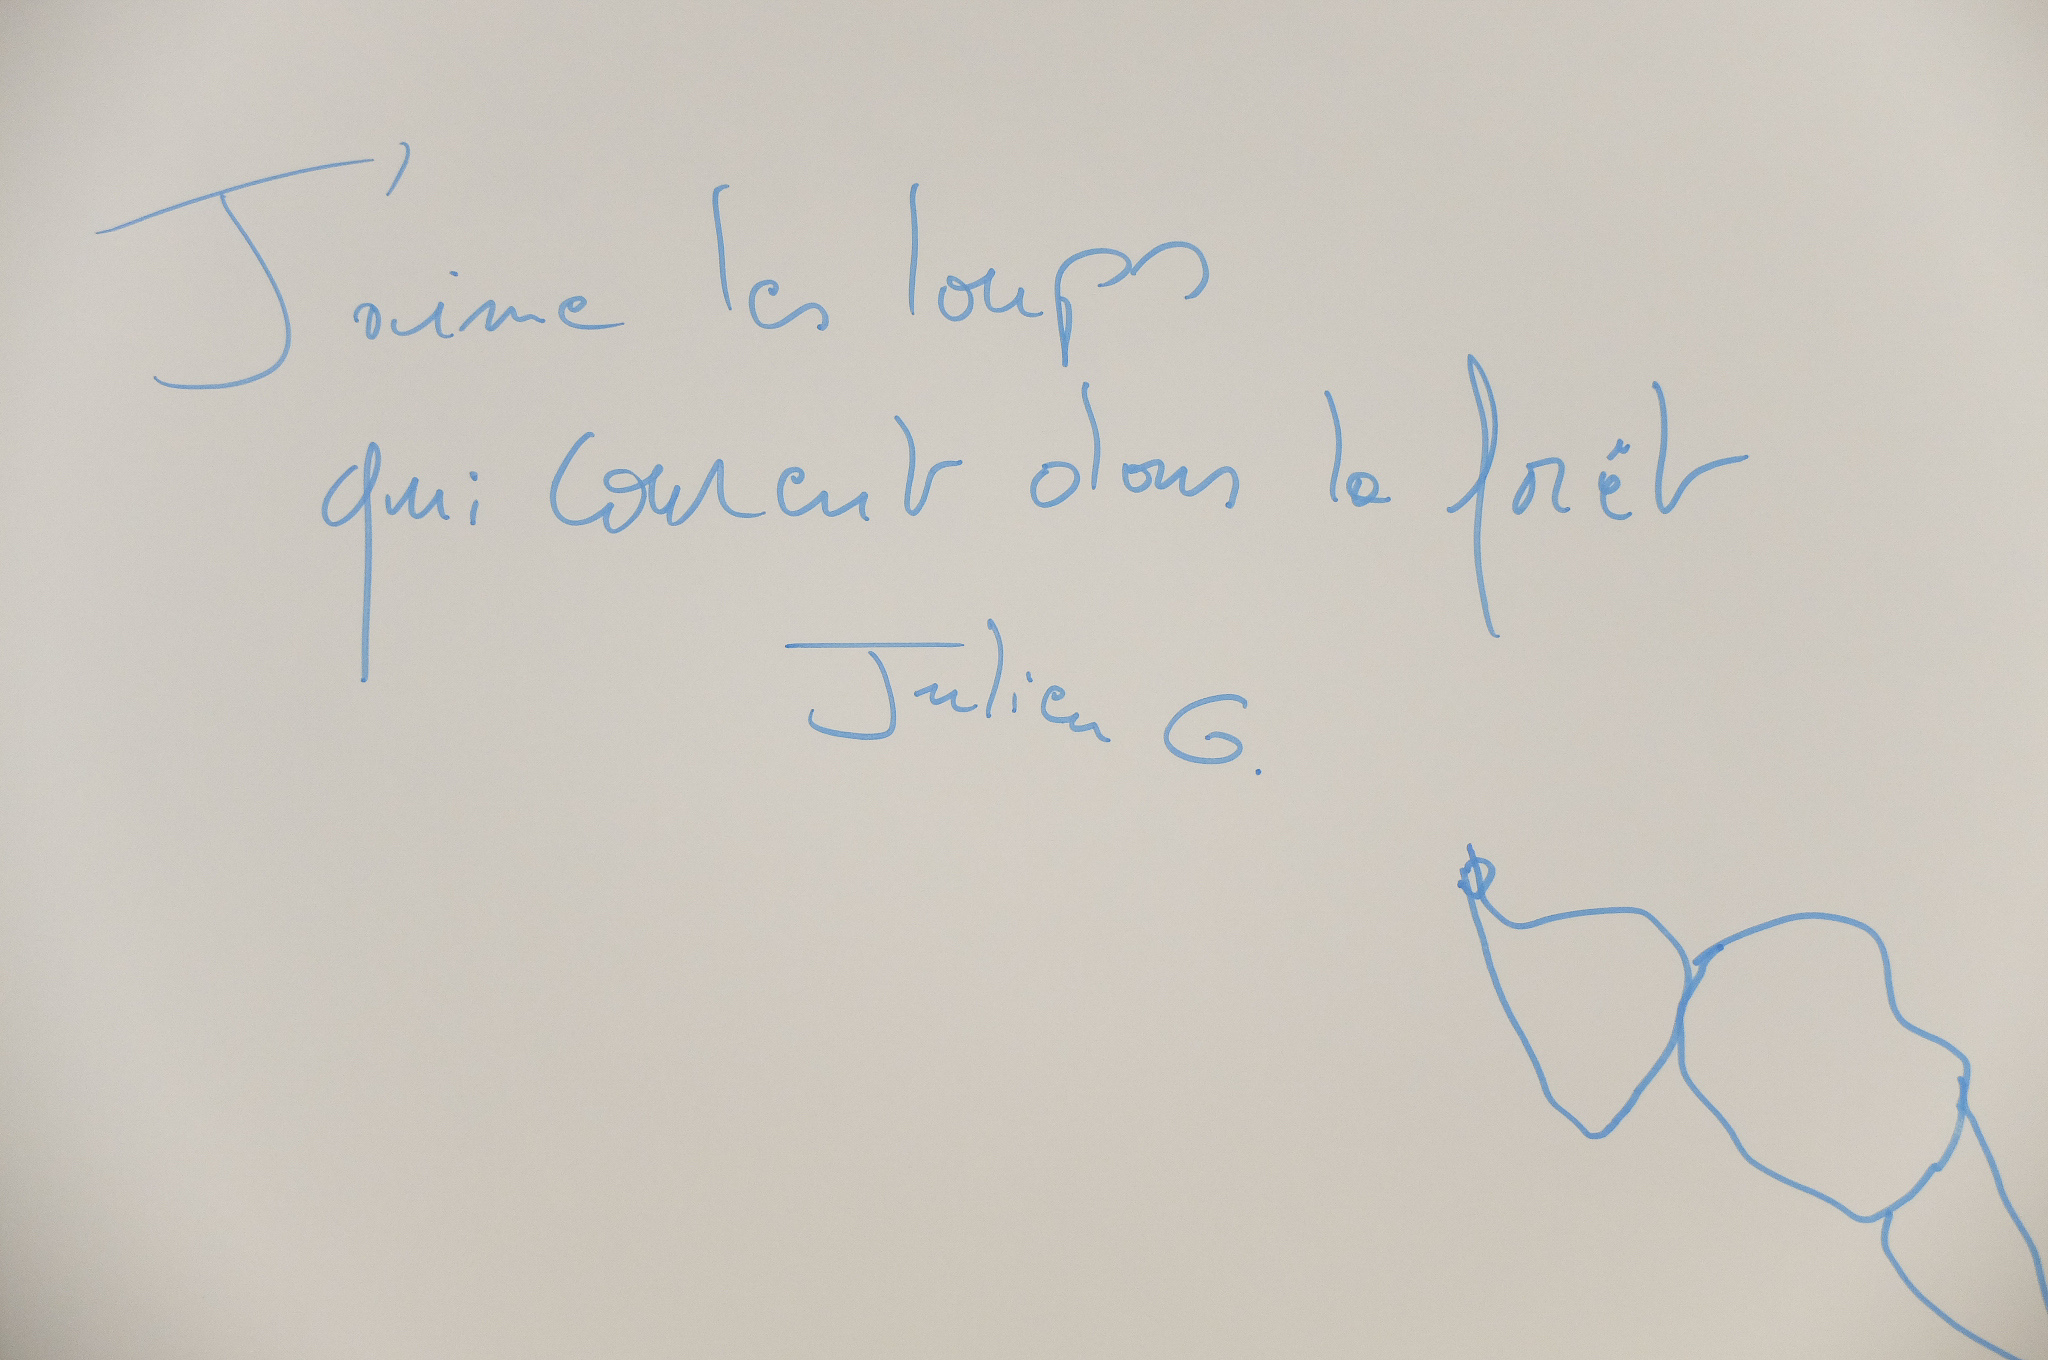 J'aime les loups
qui courent dans la forêt
Julien G.